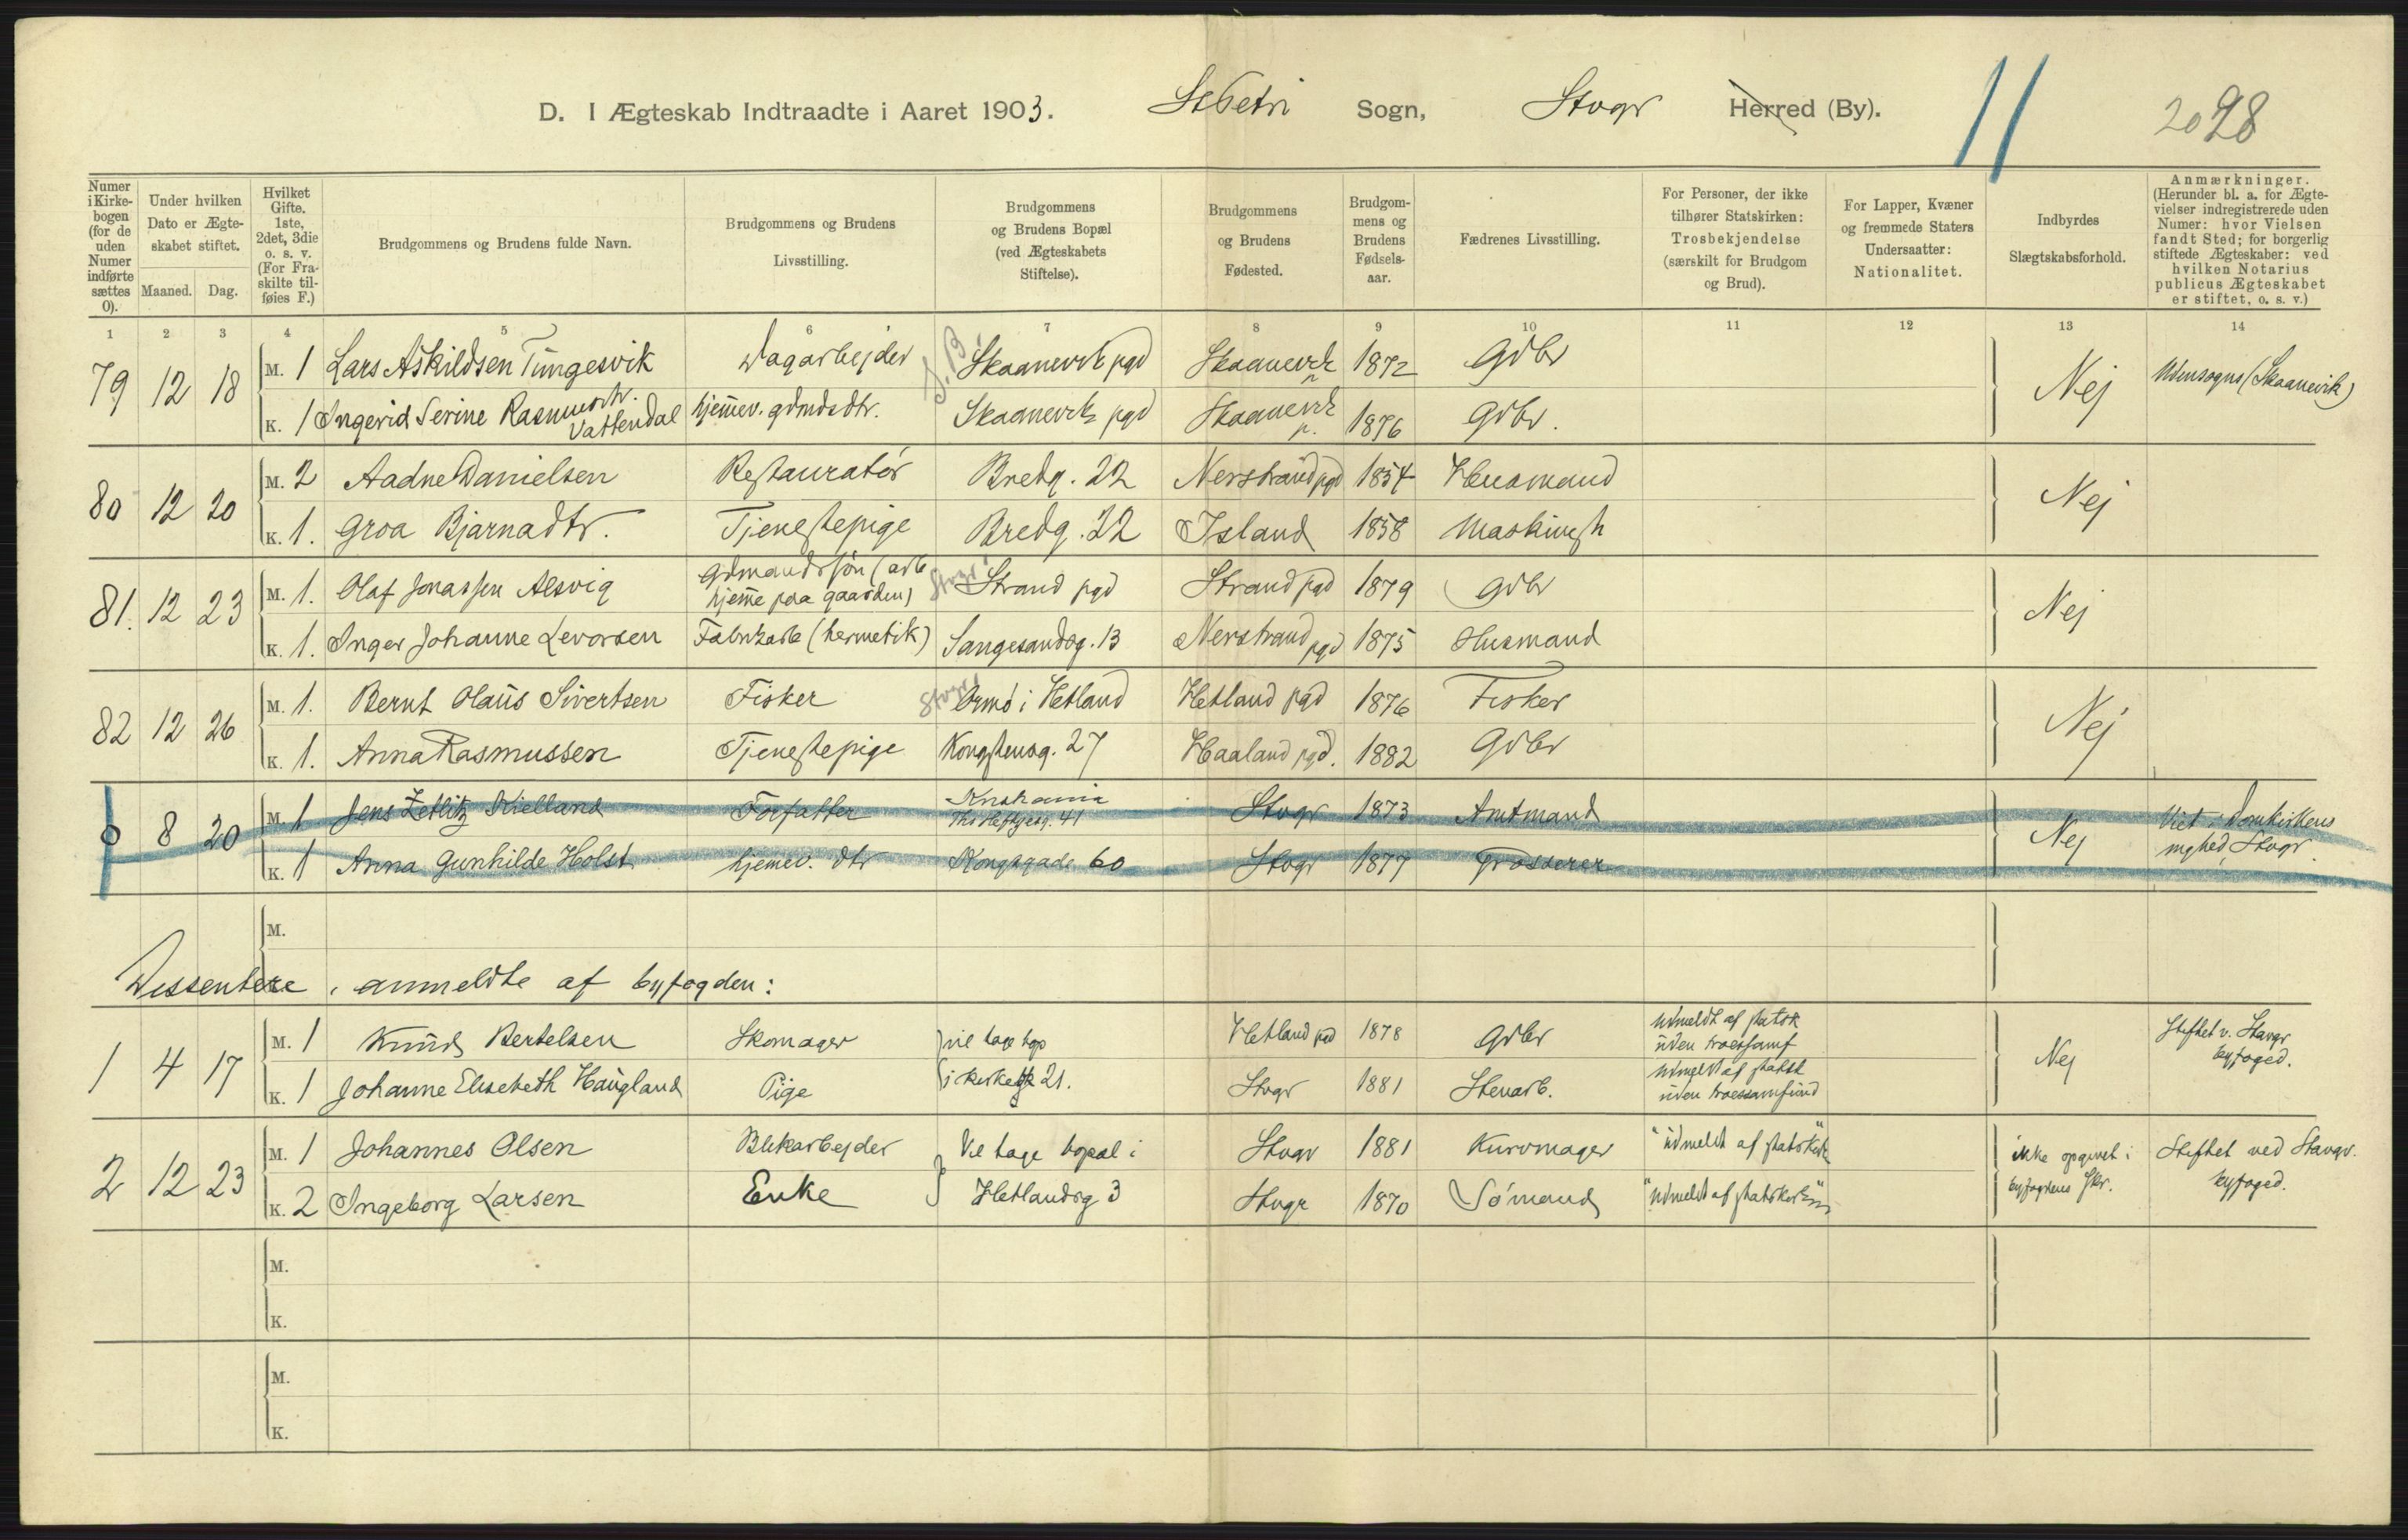 D. I Ægteskab Indtraadte i Aaret 1903. St Petri Sogn, Stvgr Herred (By). 11 20 28
Numer i Kirkebogen (for de uden Numer indførte sættes 0).
Under hvilken Dato er Ægteskabet stiftet.
Maaned. Dag.
Hvilket Gifte. 1ste, 2det, 3die o. s. v. (For Fraskilte tilføies F.)
Brudgommens og Brudens fulde Navn.
Brudgommens og Brudens Livsstilling.
Brudgommens og Brudens Bopæl (ved Ægteskabets Stiftelse).
Brudgommens og Brudens Fødested.
Brudgommens og Brudens Fødselsaar.
Fædrenes Livsstilling.
For Personer, der ikke tilhører Statskirken: Trosbekjendelse (særskilt for Brudgom og Brud).
For Lapper, Kvæner og fremmede Staters Undersaatter: Nationalitet.
Indbyrdes Slægtskabsforhold.
Anmærkninger. (Herunder bl. a. for Ægtevielser indregistrerede uden Numer: hvor Vielsen fandt Sted; for borgerlig stiftede Ægteskaber: ved hvilken Notarius publicus Ægteskabet er stiftet, o. s. v.)
1 2 3 4 5 6 7 8 9 10 11 12 13 14
79 12 18 M. 1 Lars Askildsen Tungesvik Dagarbejder Skaanevik pgd Skaanevik p 1872 Gdbr Nej Udensogns (Skaanevik)
K. 1 Ingerid Serine Rasmusdtr. Vattendal hjemmev. gdmdsdtr. Skaanevik pgd Skaanevik p. 1876 Gdbr.
80 12 20 M. 2 Aadne Danielsen Restauratör Bredg. 22 Nerstrand pgd 1854 Husmand Nej
K. 1. Groa Bjarnadtr. Tjenestepige Bredg. 22 Island 1858 Maskinist
81. 12 23 M. 1. Olaf Jonassen Alsvig Gdmandssön (arb hjemme paa gaarden) Stvgr! Strand pgd Strand pgd 1879 Gdbr Nej
K. 1. Inger Johanne Levorsen Fabrikarb (hermetik) Sangesandsg. 13 Nerstrand pgd 1875 Husmand
82 12 26 M. 1. Bernt Olaus Sivertsen Fisker Stvgr! Ormö i Hetland Hetland pgd 1876 Fisker Nej
K. 1. Anna Rasmussen Tjenestepige Kongstensg. 27 Haaland pgd. 1882 Gdbr
0 8 20 M. 1 Jens Zetlitz Kielland Forfatter Kristiania Ths Heftyesg. 41 Stvgr 1873 Amtmand Nej Viet i Domkirkens mghed Stvgr.
K. 1 Anna Gunhilde Holst hjemmev. dtr Kongsgade 60 Stvgr 1877 Grosserer
M.
Dissentere, anmeldte af byfogden:
1 4 17 M. 1 Knud Bertelsen Skomager vil tage bop Hetland pgd 1878 Gdbr Udmeldt af statsk uden troessamf Nej Stiftet v. Stavgr byfoged.
K. 1 Johanne Elisebeth Haugland Pige i kirkeg 21. Stvgr 1881 Stenarb. Udmeldt af statsk uden troessamfund
2 12 23 M. 1 Johannes Olsen Blikarbejder Vil tage bopæl i Stvgr 1881 Kurvmager "udmeldt af statskirk" ikke opgivet i byfogdens skr. Stiftet ved Stavgr. byfoged.
K. 2 Ingeborg Larsen Enke Hetlandsg 3 Stvgr 1870 Sömand "Udmeldt af statskirken"
M.
K.
M.
K.